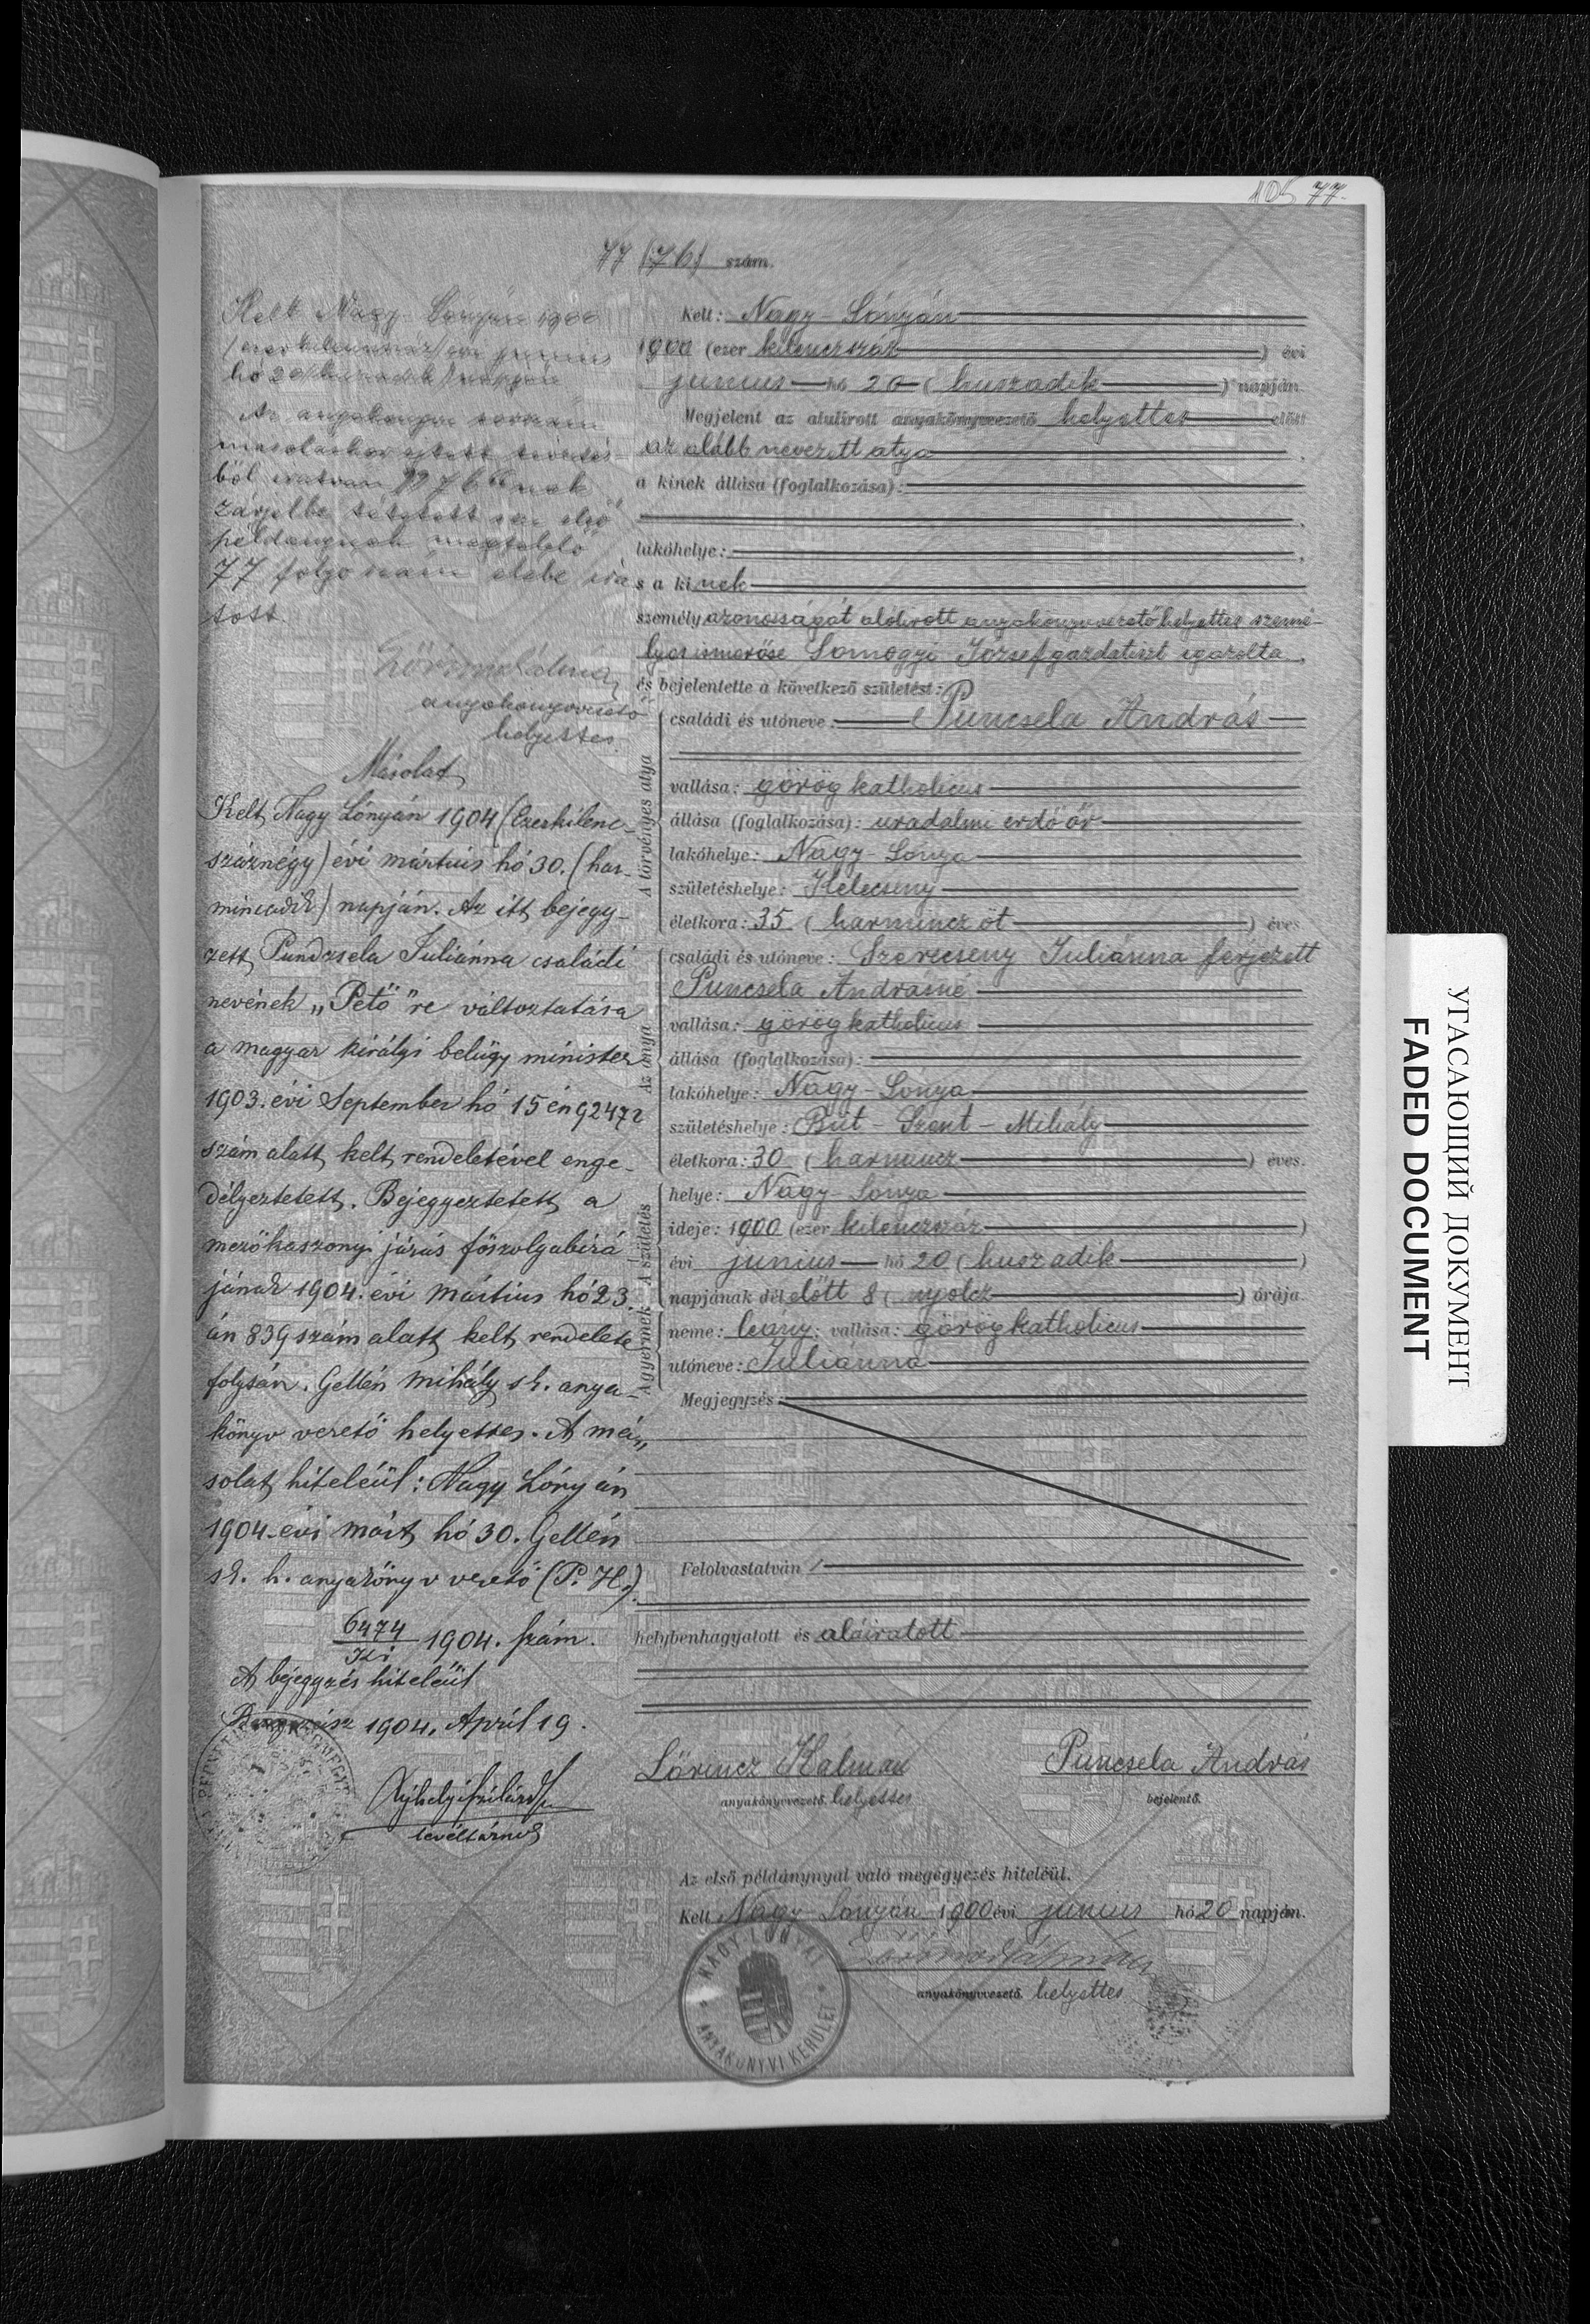 105 77.
77 (76) szám.
Kelt Nagy Lónyán 1900
(ezerkilenczszáz) évi junius
hó 20 (huszadik) napján
Az anyakönyv
másoláskor ejtett
ból "76"
zárjelbe tétetett az első
példánynak megfelelő
77 folyószám elébe ira
tott.
anyakönyvvezető
helyettes
Másolat
Kelt Nagy Lónyán 1904 (Ezerkilenc-
száznégy) évi mártius hó 30. (har-
mincadik) napján. Az itt bejegy-
zett Pundzsela Juliánna családi
nevének „Pető"re változtatása
a magyar királyi belügy minister
1903. évi September hó 15 én 92472
szám alatt kelt rendeletével enge-
délyeztetett. Bejegyeztetett a
mezőkaszonyi járás főszolgabirá
jának 1904. évi mártius hó 23
án 839 szám alatt kelt rendelete
folytán. Gellén Mihály sk. anya-
könyv vezető helyettes. A má„
solat hiteléül: Nagy Lónyán
1904. évi márt hó 30. Gellén
sk. h. anyakönyv vezető (P. H.)
6474 1904. szám.
A bejegyzés hiteléül
Beregszász 1904. April 19.
levéltárnok
Kelt: Nagy-Lónyán
1900 (ezer kilenczszáz) évi
junius hó 20 (huszadik) napján
Megjelent az alulirott anyakönyvvezető helyettes előtt
az alább nevezett atya
a kinek állása (foglalkozása):
lakóhelye:
s a kinek
személyazonosságát alólirott anyakönyvvezető helyettes szemé-
lyes ismerőse Somogyi József gazdatiszt igazolta
és bejelentette a következő születést:
A törvényes atya
családi és utóneve: Puncsela András
vallása: görög katholicus
állása (foglalkozása): uradalmi erdőőr
lakóhelye: Nagy-Lónya
születéshelye: Kelecseny
életkora: 35 (harmincz öt) éves
Az anya
családi és utóneve: Szerecseny Juliánna férjezett
Puncsela Andrásné
vallása: görög katholicus
állása (foglalkozása):
lakóhelye: Nagy-Lónya
születéshelye: Büt-Szent-Mihály
életkora: 30 (harmincz) éves.
A születés
helye: Nagy-Lónya
ideje: 1900 (ezer kilenczszáz)
évi junius hó 20 (huszadik)
napjának dél előtt 8 (nyolcz) órája
A gyermek
neme: leány; vallása: görög katholicus
utóneve: Juliánna
Megjegyzés:
Felolvastatván
helybenhagyatott és aláiratott
Lőrincz Kálmán
anyakönyvvezető helyettes
Puncsela András
bejelentő.
Az első példánynyal való megegyezés hiteléül.
Kelt Nagy Lónyán 1900 évi junius hó 20 napján.
anyakönyvvezető. helyettes
NAGY-LÓNYAI
ANYAKÖNYVI KERÜLET
УГАСАЮЩИЙ ДОКУМЕНТ
FADED DOCUMENT